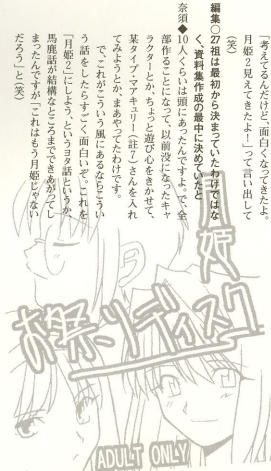 「考えてるんだけど、面白くなってきたよ。
月姫2見えてきたよー！」って言い出して
（笑）
編集○27祖は最初から決まっていたわけではな
く、資料集作成の最中に決めていたと
奈須◆10人くらいは頭にあったんですよ。で、全
部作ることになって、以前没になったキャ
ラクターとか、ちょっと遊び心をきかせて、
某タイプ・マアキュリー（註7）さんを入れ
てみようとか、まあやってたわけです。
で、これがこういう風にあるならこうい
う話をしたらすごく面白いぞ。これを
「月姫2」にしよう、というヨタ話というか、
馬鹿話が結構なところまでできあがってし
まったんですが「これはもう月姫じゃない
だろう」と（笑）
姫
お祭りディスク
ADULT ONLY